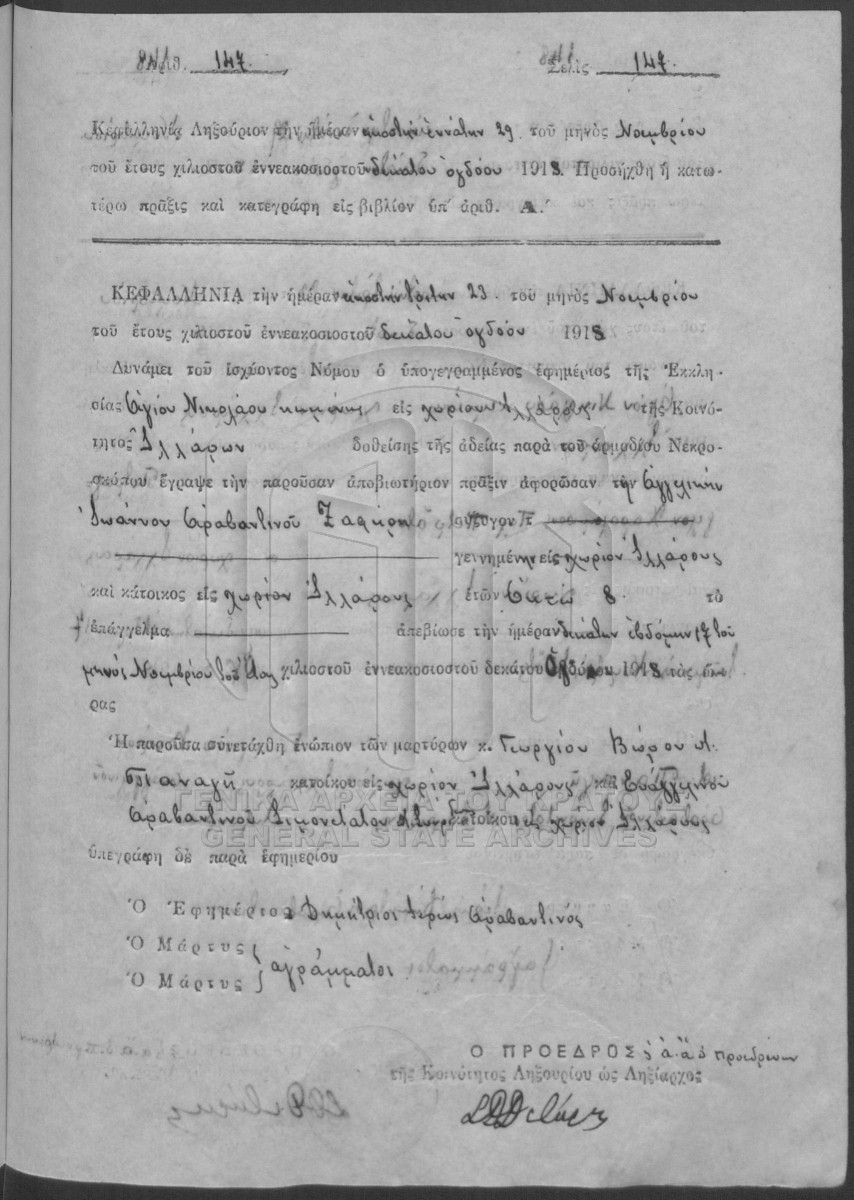 Ἀριθ. 147. Σελὶς 147.
Κεφαλληνία Ληξούριον τὴν ἡμέραν εἰκοστὴν ἐννάτην 29 τοῦ μηνὸς Νοεμβρίου
τοῦ ἔτους χιλιοστοῦ ἐννεακοσιοστοῦ δεκάτου ὀγδόου 1918. Προσήχθη ἡ κατω-
τέρω πρᾶξις καὶ κατεγράφη εἰς βιβλίον ὑπ' ἀριθ. Α.
ΚΕΦΑΛΛΗΝΙΑ τὴν ἡμέραν εἰκοστὴν τρίτην 23. τοῦ μηνὸς Νοεμβρίου
τοῦ ἔτους χιλιοστοῦ ἐννεακοσιοστοῦ δεκάτου ὀγδόου 1918
Δυνάμει τοῦ ἰσχύοντος Νόμου ὁ ὑπογεγραμμένος ἐφημέριος τῆς Ἐκκλη-
σίας Ἁγίου Νικολάου εἰς χωρίον τῆς Κοινό-
τητος δοθείσης τῆς ἀδείας παρὰ τοῦ ἁρμοδίου Νεκρο-
σκόπου ἔγραψε τὴν παροῦσαν ἀποβιωτήριον πρᾶξιν ἀφορῶσαν τὴν Ἀγγελικὴν
Ἰωάννου Ἀραβαντινοῦ σύζυγον
γεννημένην εἰς χωρίον
καὶ κάτοικος εἰς χωρίον ἐτῶν ὀκτὼ 8. τὸ
ἐπάγγελμα ἀπεβίωσε τὴν ἡμέραν δεκάτην ἑβδόμην 17 τοῦ
μηνὸς Νοεμβρίου τοῦ ἔτους χιλιοστοῦ ἐννεακοσιοστοῦ δεκάτου ὀγδόου 1918 τὰς ὥ-
ρας
Ἡ παροῦσα συνετάχθη ἐνώπιον τῶν μαρτύρων κ. Γεωργίου
Παναγῆ κατοίκου εἰς χωρίον καὶ Εὐαγγελινοῦ
Ἀραβαντινοῦ κατοίκου εἰς χωρίον
ὑπεγράφη δὲ παρὰ ἐφημερίου
Ὁ Ἐφημέριος Δημήτριος ἱερεὺς Ἀραβαντινός
Ὁ Μάρτυς
ἀγράμματοι
Ὁ Μάρτυς
Ο ΠΡΟΕΔΡΟΣ
τῆς Κοινότητος Ληξουρίου ὡς Ληξίαρχος
ΓΕΝΙΚΑ ΑΡΧΕΙΑ ΤΟΥ ΚΡΑΤΟΥΣ
GENERAL STATE ARCHIVES